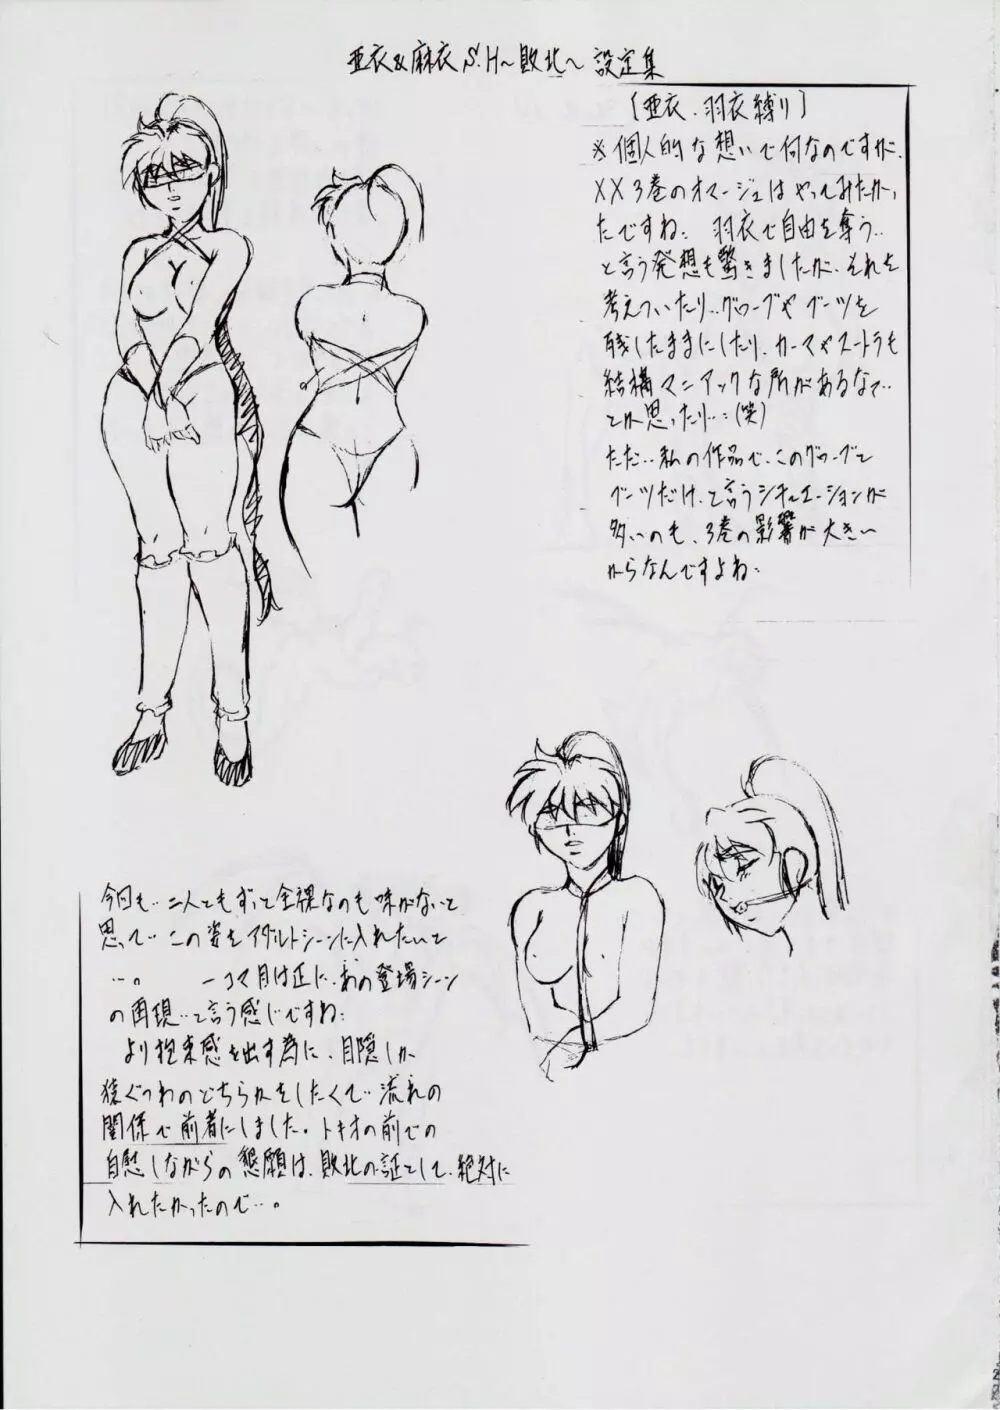 亜衣&麻衣 S.H～敗北～ 設定集
〔亜衣、羽衣縛り〕
※個人的な想いで何なのですが、
XX3巻のオマージュはやってみたかっ
たですね… 羽衣で自由を奪う…
と言う発想も驚きましたが、それを
考えついたり…グローブやブーツを
残したままにしたり、カーマやスートラも
結構マニアックな所があるなぁ…
とか思ったり…(笑)
ただ…私の作品で、このグローブと
ブーツだけ、と言うシチュエーションが
多いのも、3巻の影響が大きい
からなんですよね…
今回も…二人ともずっと全裸なのも味がないと
思って…この姿をアダルトシーンに入れたいて
…。 一コマ目は正に、あの登場シーン
の再現…と言う感じですね…
より拘束感を出す為に、目隠しか
猿ぐつわのどちらかをしたくて…流れの
関係で前者にしました。トキオの前での
自慰しながらの懇願は、敗北の証として、絶対に
入れたかったので…。